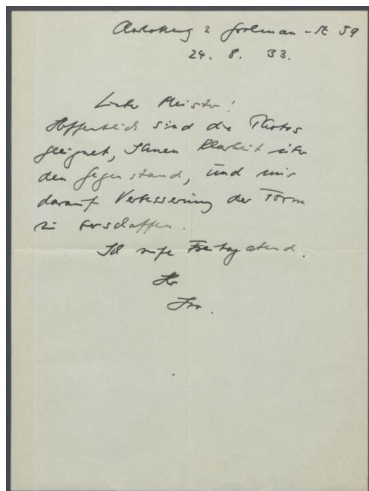 Charlottenburg 2 Grolman-St 59
24. 8. 33.
Lieber Meister!
Hoffentlich sind die Photos
geeignet, Ihnen Klarheit über
den Gegenstand, und mir
darauf Verbesserung der Form
zu verschaffen.
Ich rufe Freitag abend.
Ihr